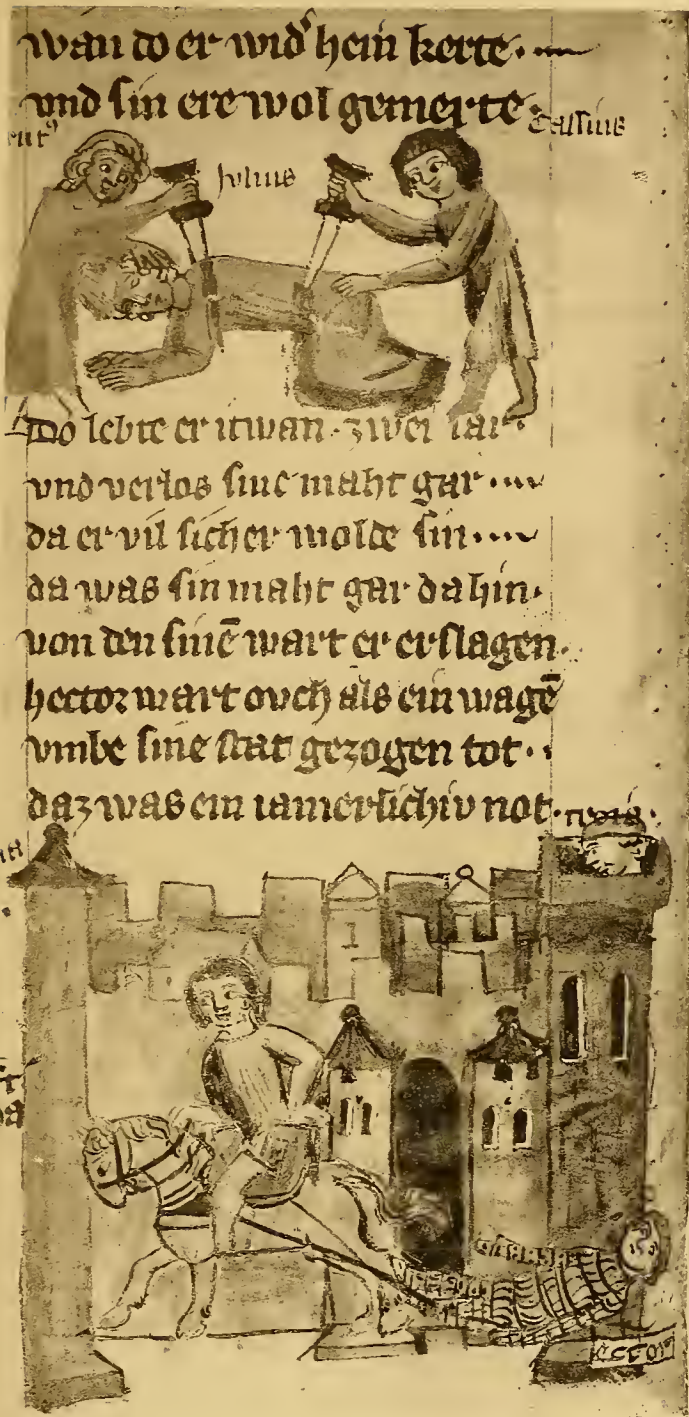 wan do er wid' hein kerte
vnd sin ere wol gemerte
cassius
Julius
Do lebte er itwan zwei iar
vnd verlos sine maht gar
da er vil sicher wolde sin
da was sin maht gar da hin
von den sinē wart er erslagen
hector wart ouch als ein wagē
vmbe sine stat gezogen tot
daz was ein iamerlichiv not